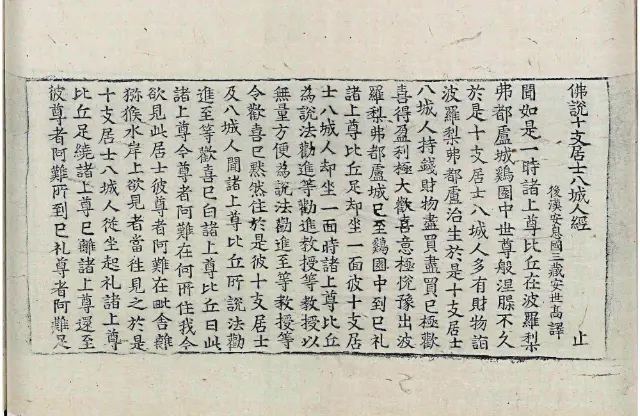 佛說十支居士八城人經
止
後漢安息國三藏安世高譯
聞如是一時諸上尊比丘在波羅梨
弗都盧城鷄園中世尊般涅槃不久
於是十支居士八城人多有財物詣
波羅梨弗都盧治生於是十支居士
八城人持錢財物盡買盡買已極歡
喜得盈利極大歡喜意極悅豫出波
羅梨弗都盧城已至鷄園中到已礼
諸上尊比丘足却坐一面彼十支居
士八城人却坐一面時諸上尊比丘
為說法勸進等勸進教授等教授以
無量方便為說法勸進至等教授等
令歡喜已默然住於是彼十支居士
及八城人聞諸上尊比丘所說法勸
進至等歡喜已白諸上尊比丘曰此
諸上尊今尊者阿難在何所住我今
欲見此居士彼尊者阿難在毗舍離
獼猴水岸上欲見者當往見之於是
十支居士八城人從坐起礼諸上尊
比丘足繞諸上尊已離諸上尊還至
彼尊者阿難所到已礼尊者阿難足